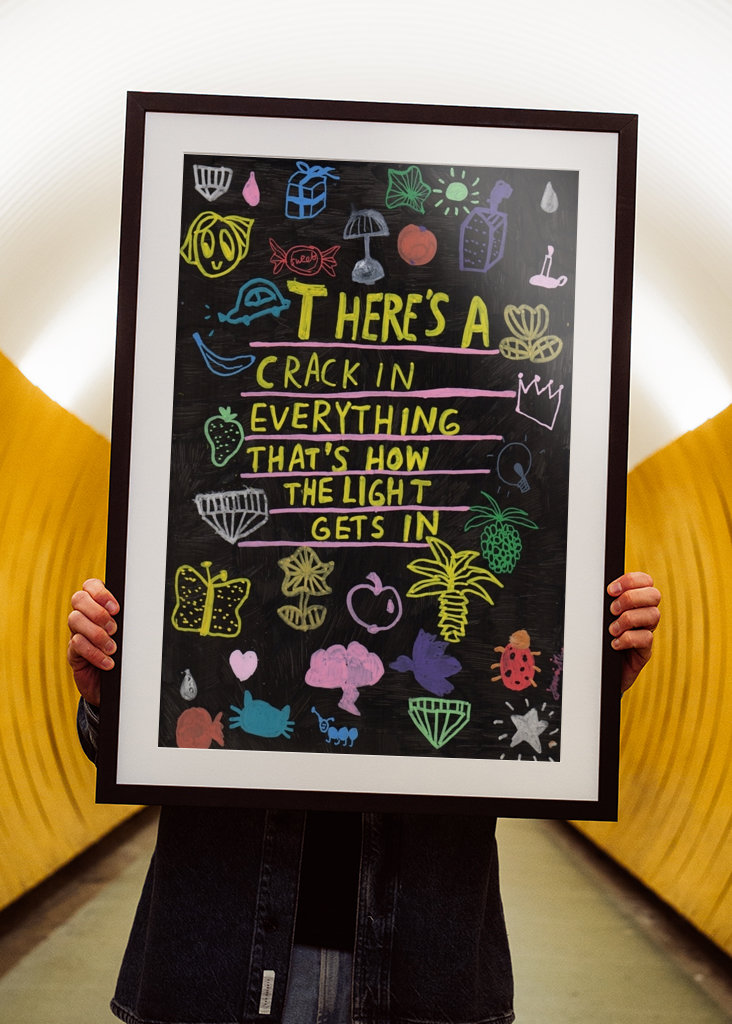 Sweet
THERE'S A
CRACK IN
EVERYTHING
THAT'S HOW
THE LIGHT
GETS IN